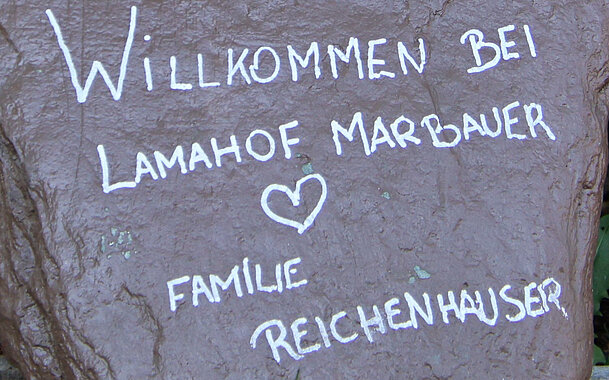 WiLLKOMMEN BEI
LAMAHOF MARBAUER
FAMiLIE
REICHENHAUSER